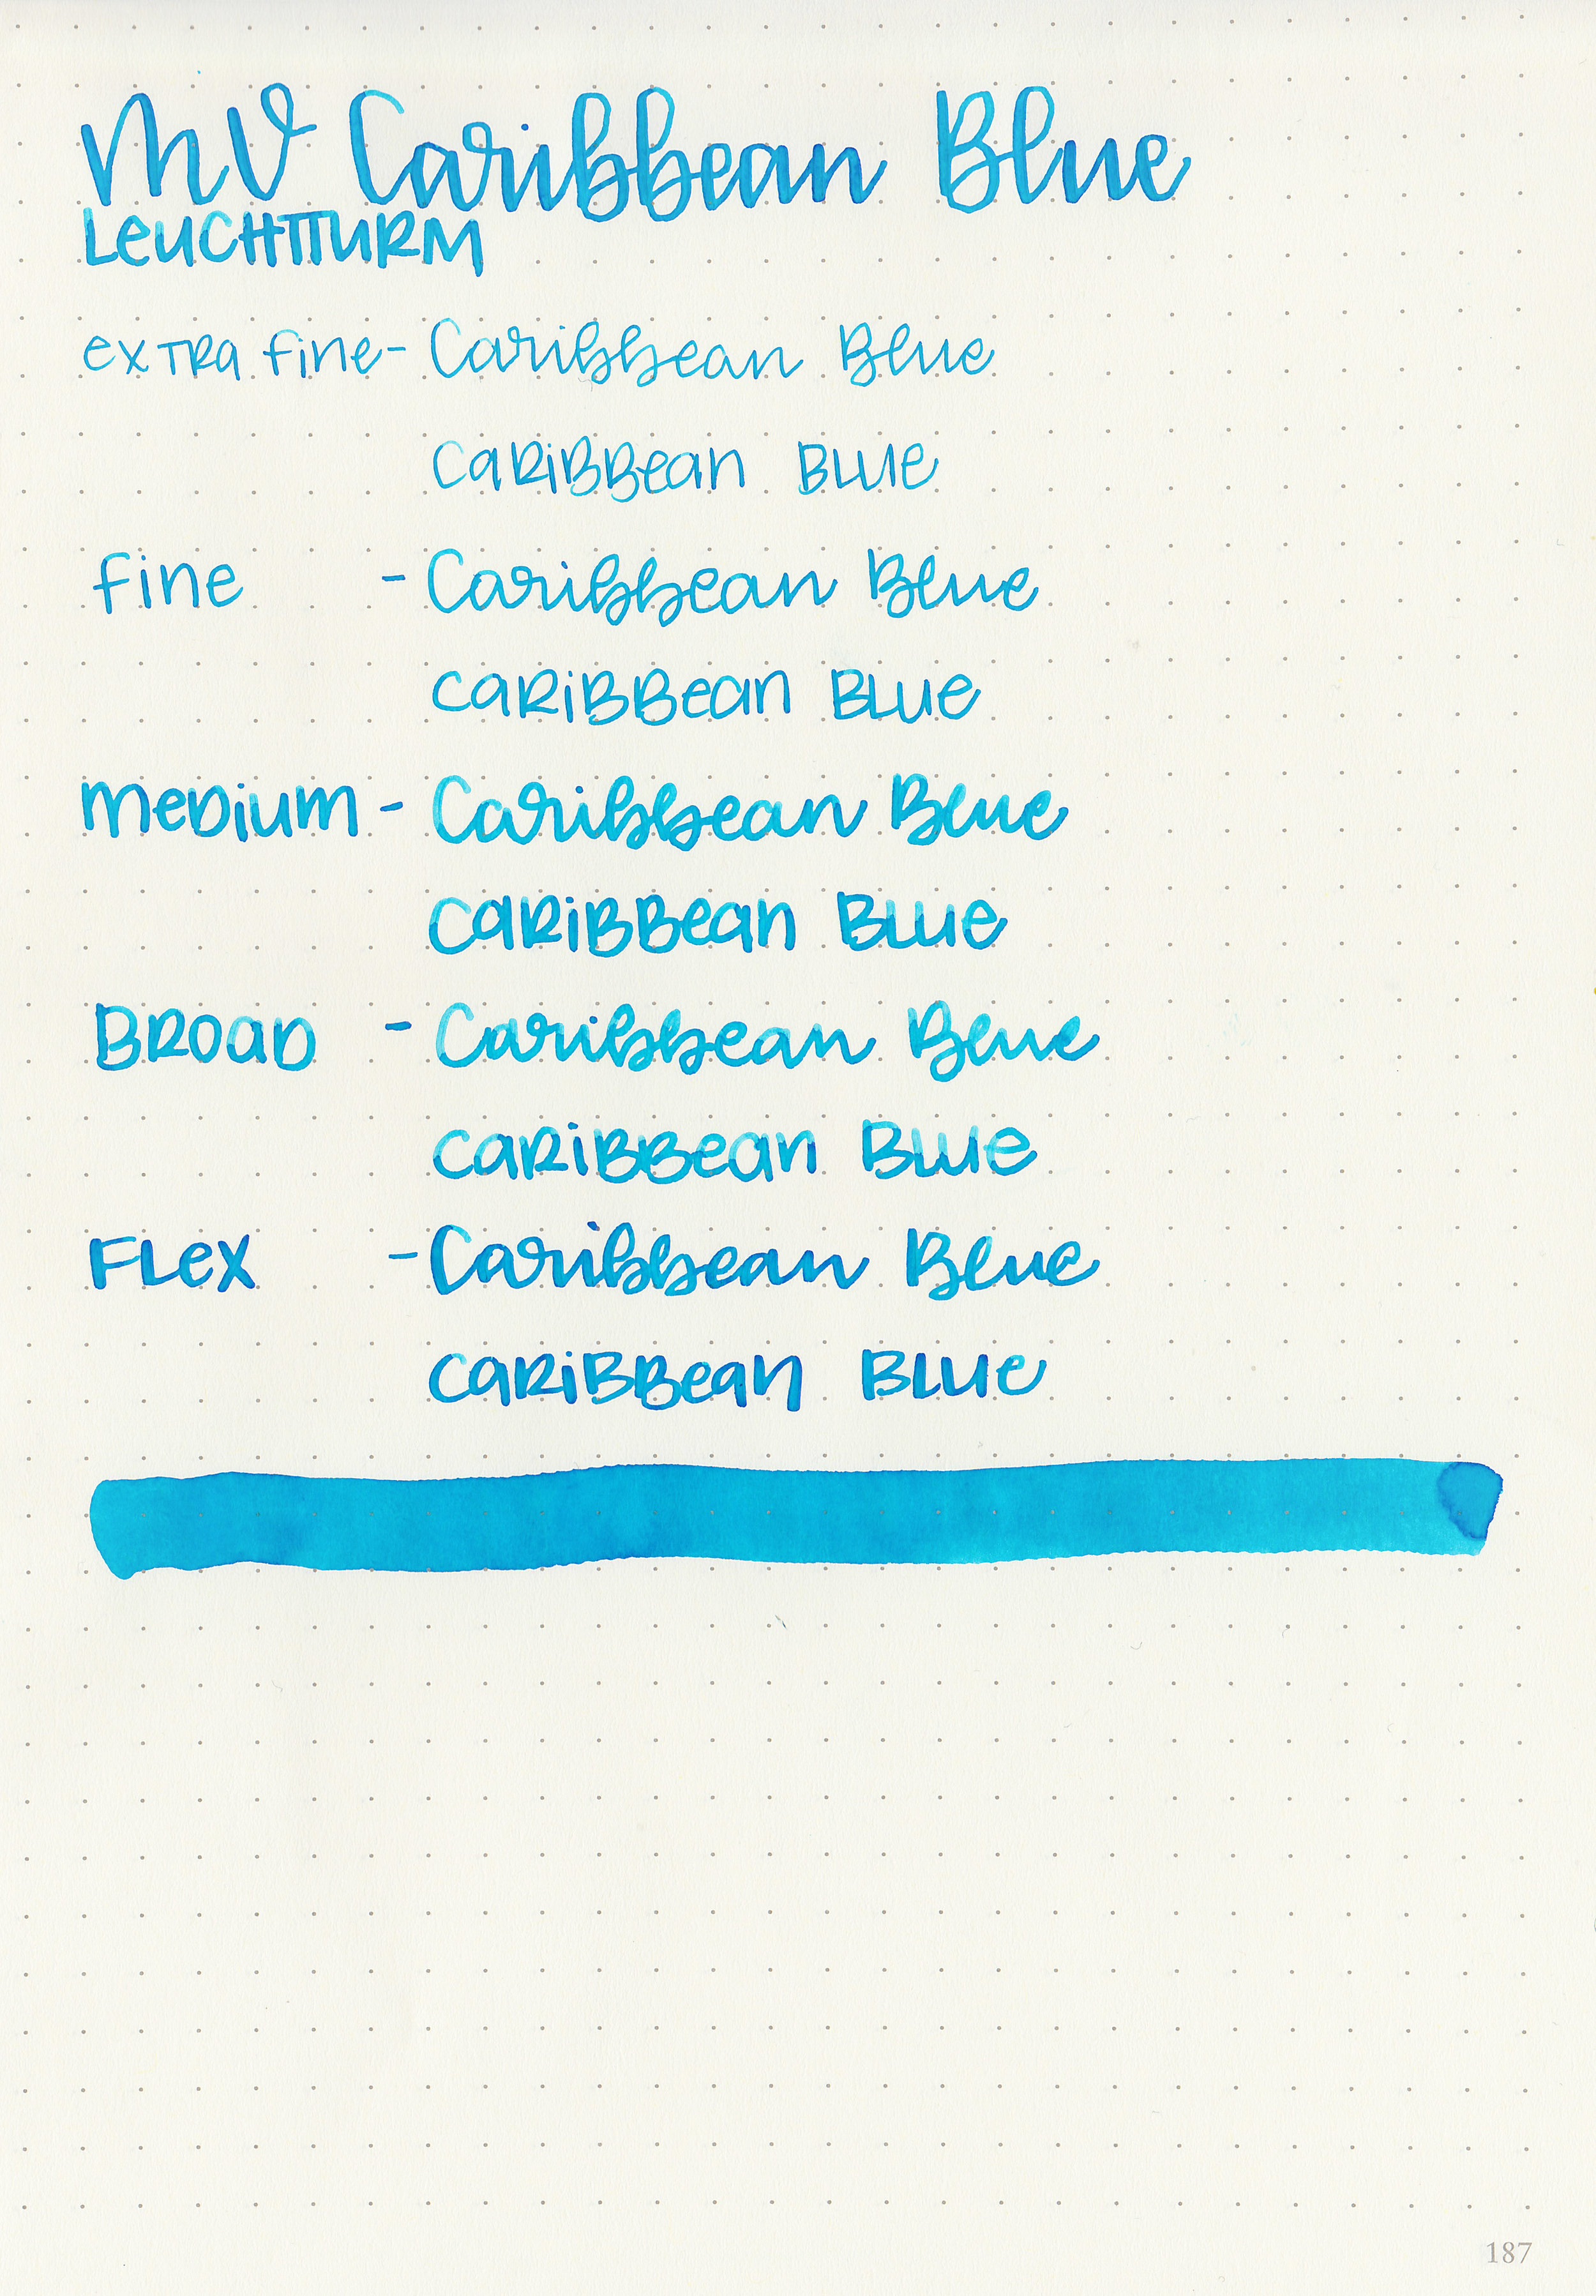 MV Caribbean Blue
LeuCHTTuRM
exTRa fine - Caribbean Blue
CaRiBBean BLue
fine - Caribbean Blue
CaRiBBean BLue
meDium - Caribbean Blue
CaRiBBean BLue
BROaD - Caribbean Blue
CaRiBBean BLue
FLex - Caribbean Blue
CaRiBBean BLue
187